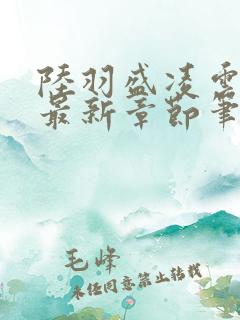 陸羽盛凌雲
最新章節筆
毛峰
未经同意禁止转载